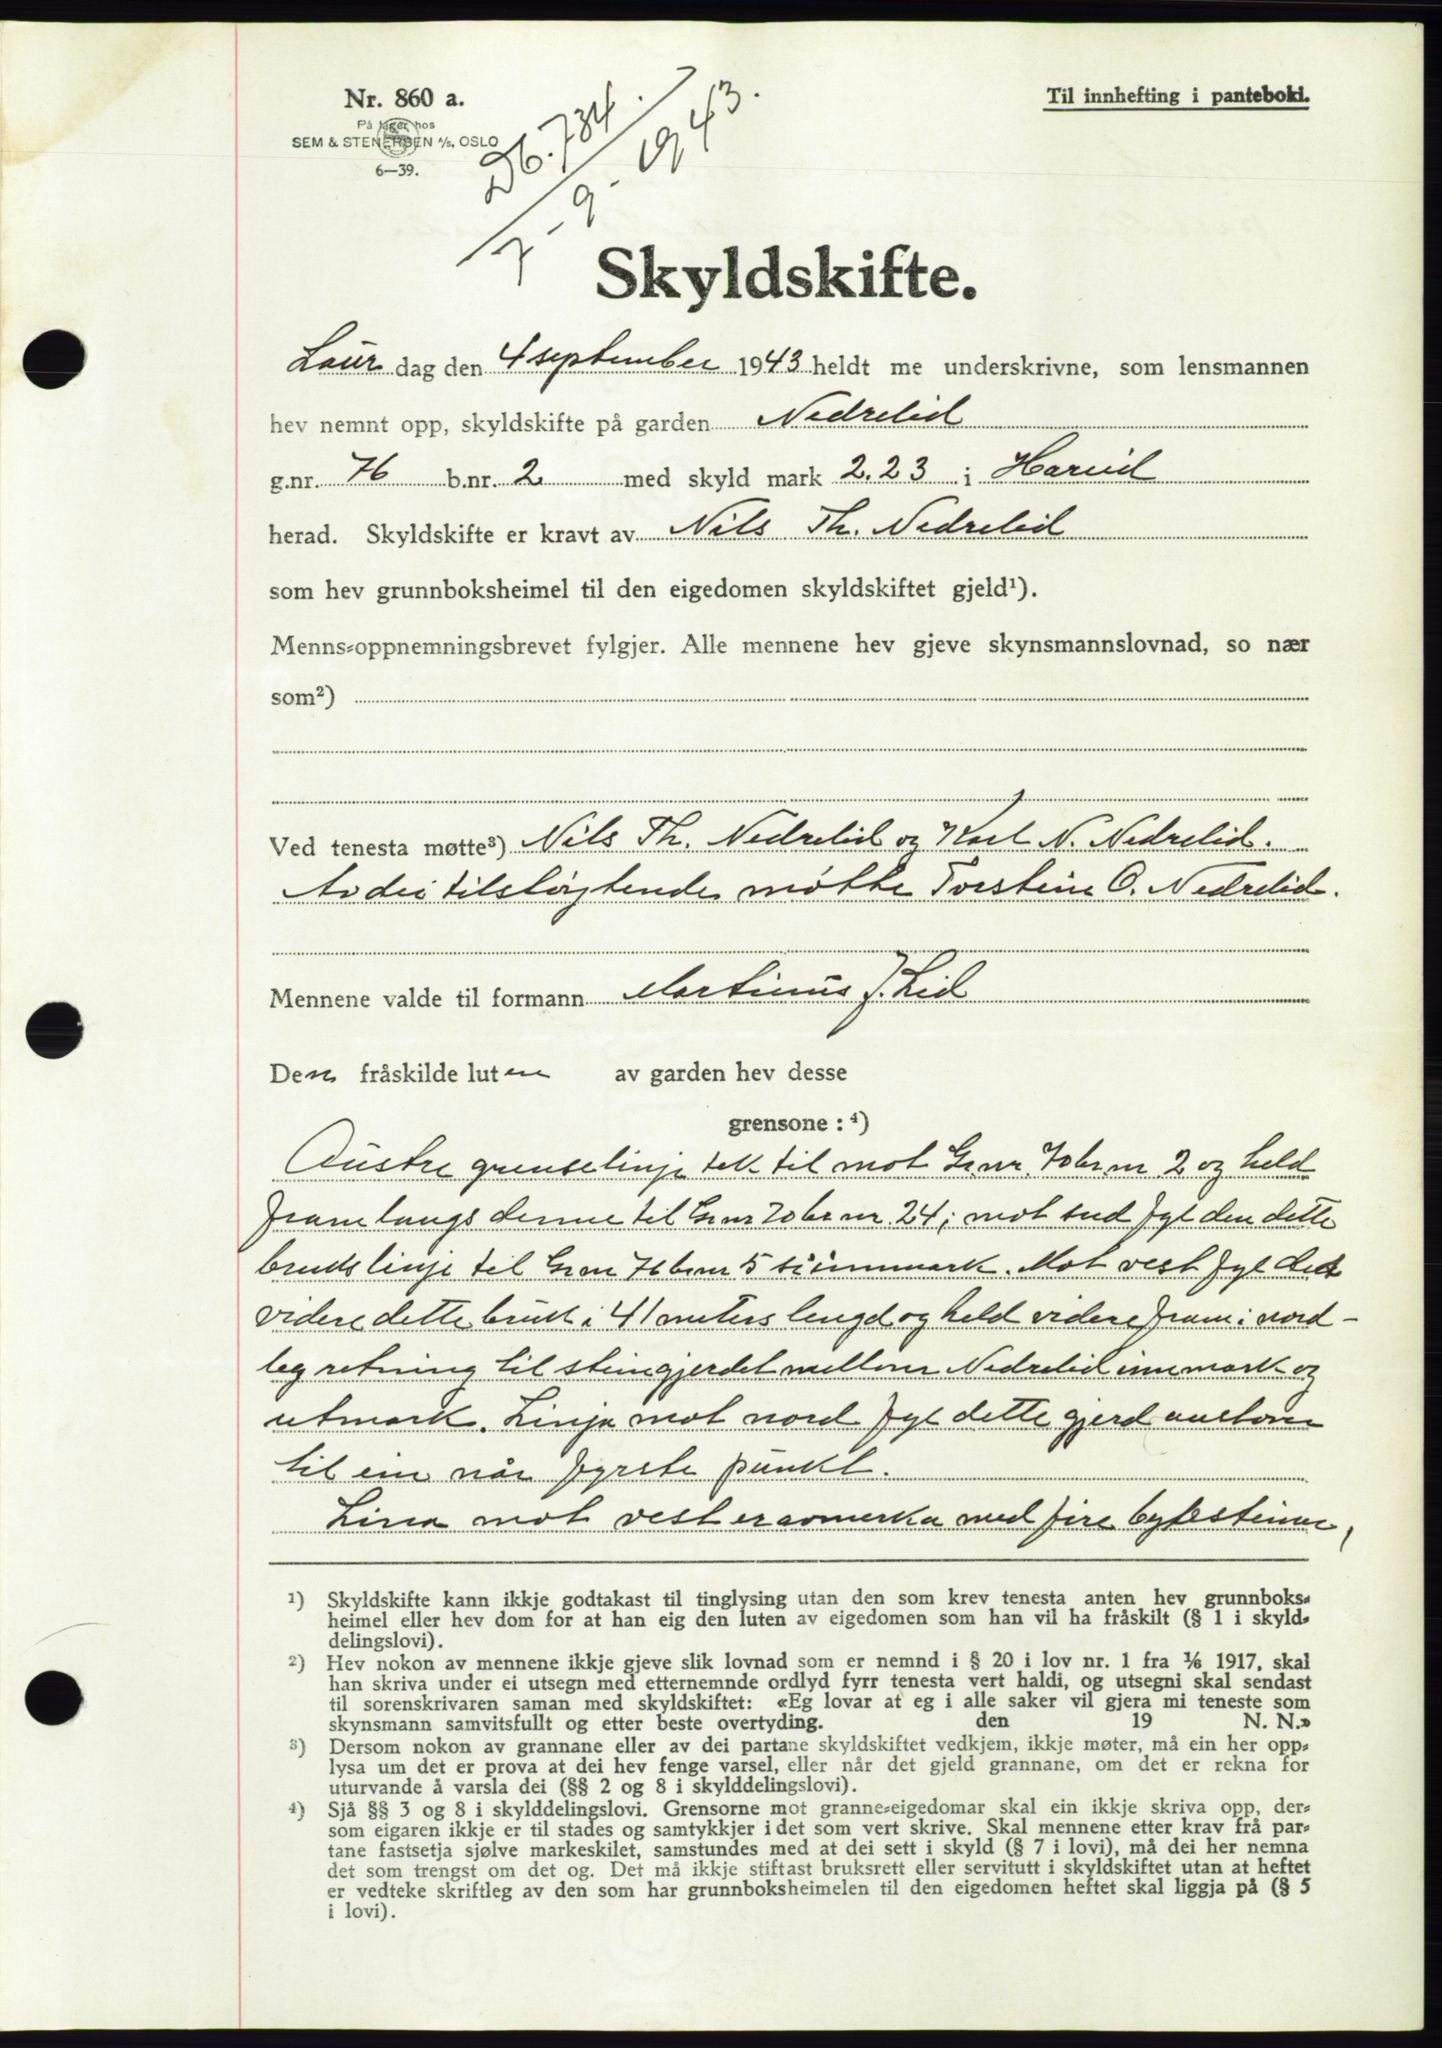 Nr. 860 a.
På lager hos
SEM & STENERSEN A/S, OSLO
6—39.
Db. 734.
7-9-1943.
Til innhefting i panteboki.
Skyldskifte.
Laur dag den 4 september 1943 heldt me underskrivne, som lensmannen
hev nemnt opp, skyldskifte på garden Nedrelid
g.nr. 76 b.nr. 2 med skyld mark 2.23 i Hareid
herad. Skyldskifte er kravt av Nils Th. Nedrelid
som hev grunnboksheimel til den eigedomen skyldskiftet gjeld¹).
Menns-oppnemningsbrevet fylgjer. Alle mennene hev gjeve skynsmannslovnad, so nær
som²)
Ved tenesta møtte³) Nils Th. Nedrelid og Karl N. Nedrelid.
Av dei tilstøytende møtte Torstein O. Nedrelid.
Mennene valde til formann Martinus J. Lid
Den fråskilde luten av garden hev desse
grensone : ⁴)
Austre grenselinje tek til mot Gr.nr. 70 br.nr. 2 og held
fram langs denne til Gr.nr 70 br.nr. 24; mot sud fyl den dette
bruks linje til Gr.nr 76 br.nr 5 si innmark. Mot vest fyl det
videre dette bruk i 41 meters lengd og held videre fram i nord-
leg retning til steingjerdet mellom Nedrelid innmark og
utmark. Linja mot nord fyl dette gjerd austover
til ein når fyrste punkt.
Lina mot vest er avmerka med fire bytesteinar,
¹) Skyldskifte kann ikkje godtakast til tinglysing utan den som krev tenesta anten hev grunnboks-
heimel eller hev dom for at han eig den luten av eigedomen som han vil ha fråskilt (§ 1 i skyld-
delingslovi).
²) Hev nokon av mennene ikkje gjeve slik lovnad som er nemnd i § 20 i lov nr. 1 fra ⅙ 1917, skal
han skriva under ei utsegn med etternemnde ordlyd fyrr tenesta vert haldi, og utsegni skal sendast
til sorenskrivaren saman med skyldskiftet: «Eg lovar at eg i alle saker vil gjera mi teneste som
skynsmann samvitsfullt og etter beste overtyding. den 19 N. N.»
³) Dersom nokon av grannane eller av dei partane skyldskiftet vedkjem, ikkje møter, må ein her opp-
lysa um det er prova at dei hev fenge varsel, eller når det gjeld grannane, om det er rekna for
uturvande å varsla dei (§§ 2 og 8 i skylddelingslovi).
⁴) Sjå §§ 3 og 8 i skylddelingslovi. Grensorne mot granne-eigedomar skal ein ikkje skriva opp, der-
som eigaren ikkje er til stades og samtykkjer i det som vert skrive. Skal mennene etter krav frå par-
tane fastsetja sjølve markeskilet, samstundes med at dei sett i skyld (§ 7 i lovi), må dei her nemna
det som trengst om det og. Det må ikkje stiftast bruksrett eller servitutt i skyldskiftet utan at heftet
er vedteke skriftleg av den som har grunnboksheimelen til den eigedomen heftet skal liggja på (§ 5
i lovi).